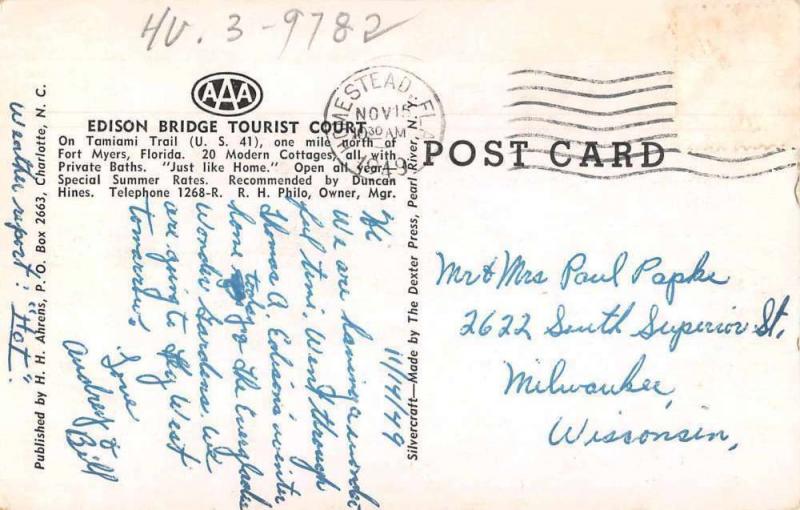 HV. 3-9782
AAA
EDISON BRIDGE TOURIST COURT
On Tamiami Trail (U. S. 41), one mile north of
Fort Myers, Florida. 20 Modern Cottages, all with
Private Baths. "Just like Home." Open all year.
Special Summer Rates. Recommended by Duncan
Hines. Telephone 1268-R. R. H. Philo, Owner, Mgr.
HOMESTEAD, FLA.
NOV 15
10 30 AM
1949
POST CARD
11/14/49
Hi
We are having a wonder
ful time. Went through
Thomas A. Edison's winter
home
today & the Everglades
Wonder Gardens. We
are going to Key West
tomorrow.
Love
Audrey &
Bill
Weather report: "Hot".
Mr & Mrs Paul Papke
2622 South Superior St,
Milwaukee,
Wisconsin,
Published by H. H. Ahrens, P. O. Box 2663, Charlotte, N. C.
Silvercraft—Made by The Dexter Press, Pearl River, N. Y.